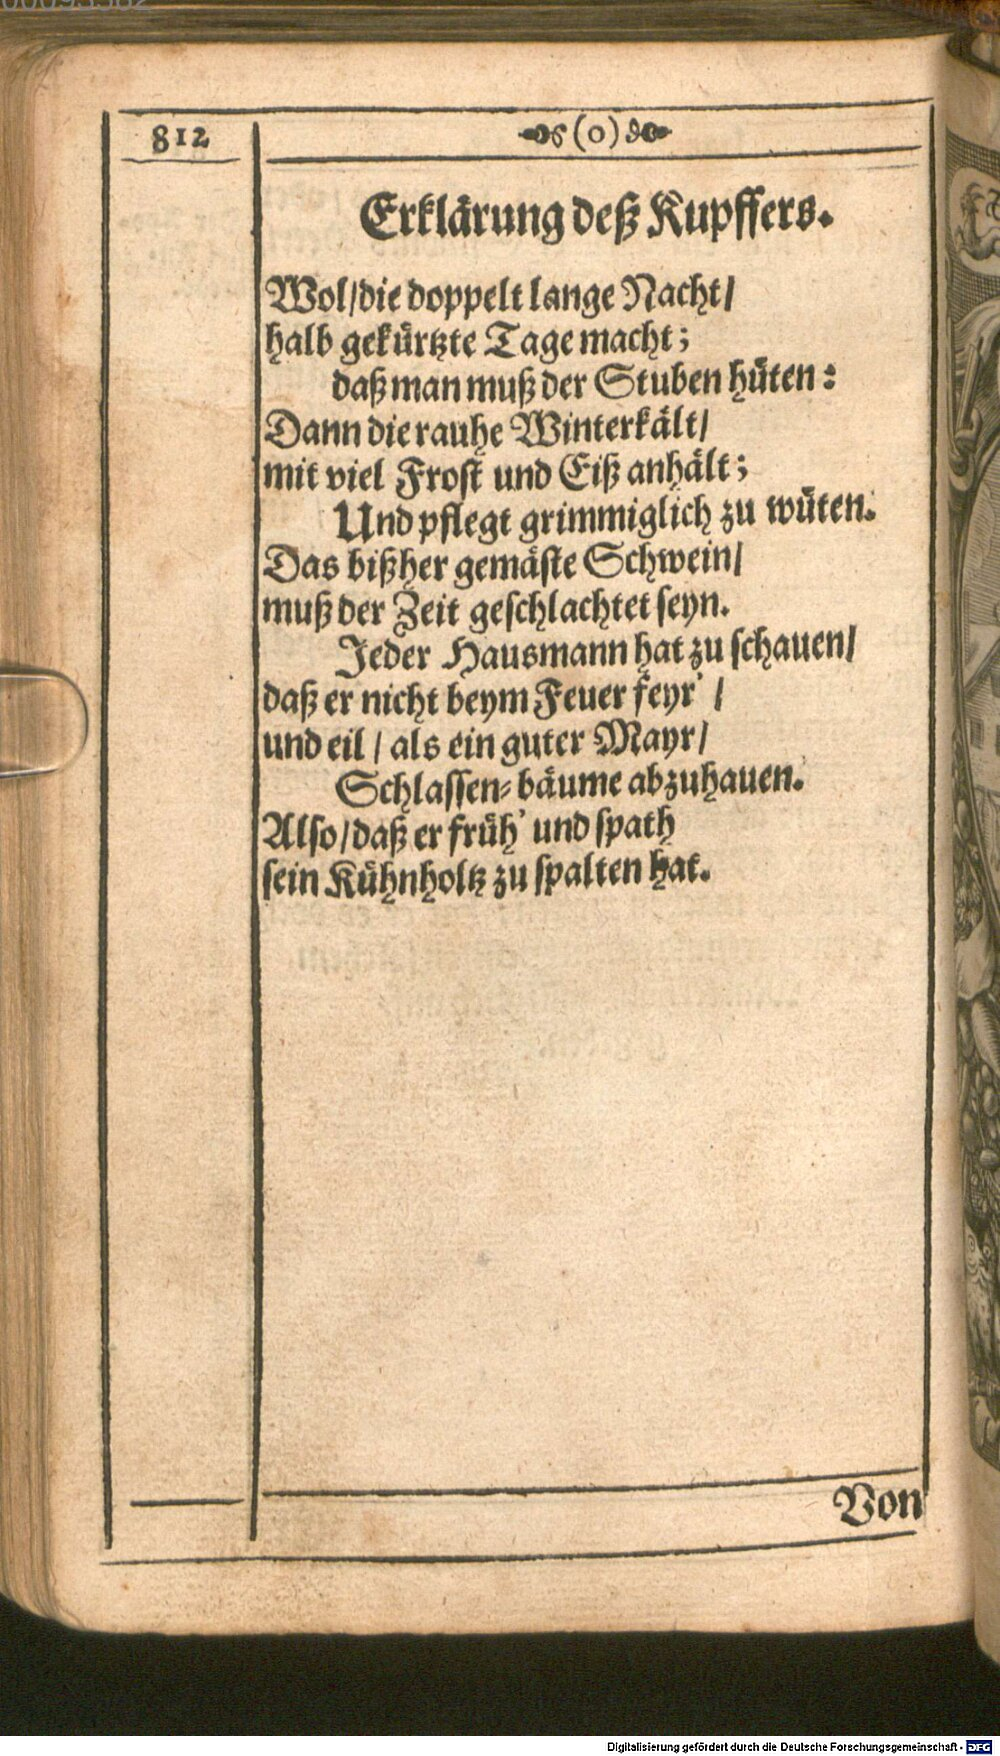 812
(o)
Erklärung deß Kupffers.
Wol/die doppelt lange Nacht/
halb gekürtzte Tage macht;
daß man muß der Stuben hüten:
Dann die rauhe Winterkält/
mit viel Frost und Eiß anhält;
Und pflegt grimmiglich zu wüten.
Das bißher gemäste Schwein/
muß der Zeit geschlachtet seyn.
Jeder Hausmann hat zu schauen/
daß er nicht beym Feuer feyr' /
und eil / als ein guter Mayr/
Schlassen-bäume abzuhauen.
Also/daß er früh' und spath
sein Kühnholtz zu spalten hat.
Von
Digitalisierung gefördert durch die Deutsche Forschungsgemeinschaft - DFG